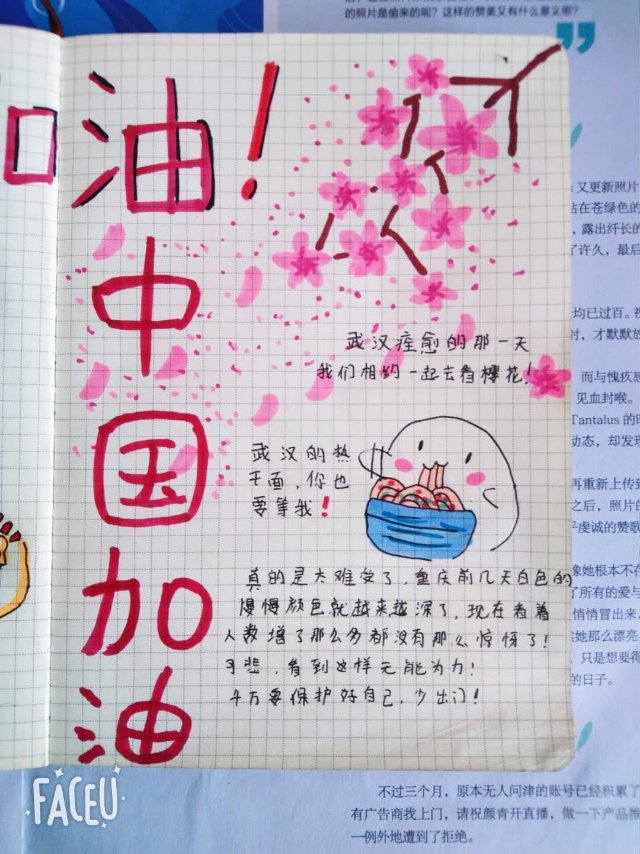 的照片是偷来的呢？这样的赞美又有什么意义呢？
油！
中
国
加
油
武汉痊愈的那一天
我们相约一起去看樱花！
武汉的热
干面，你也
要等我！
真的是太难受了，重庆前几天白色的
慢慢颜色就越来越深了，现在看着
人数增了那么多都没有那么惊讶了！
可悲，看到这样无能为力！
千万要保护好自己，少出门！
又更新照片
站在苍绿色的
，露出纤长的
了许久，最后
均已过百。
时，才默默放
而与愧疚感
见血封喉。
Tantalus 的
动态，却发现
再重新上传到
之后，照片的
乎虔诚的赞歌
像她根本不在
了所有的爱与
悄悄冒出来，
她那么漂亮
，只是想要得
的日子。
不过三个月，原本无人问津的账号已经积累了
有广告商找上门，请祝颜青开直播，做一下产品推
一例外地遭到了拒绝。
FACEU